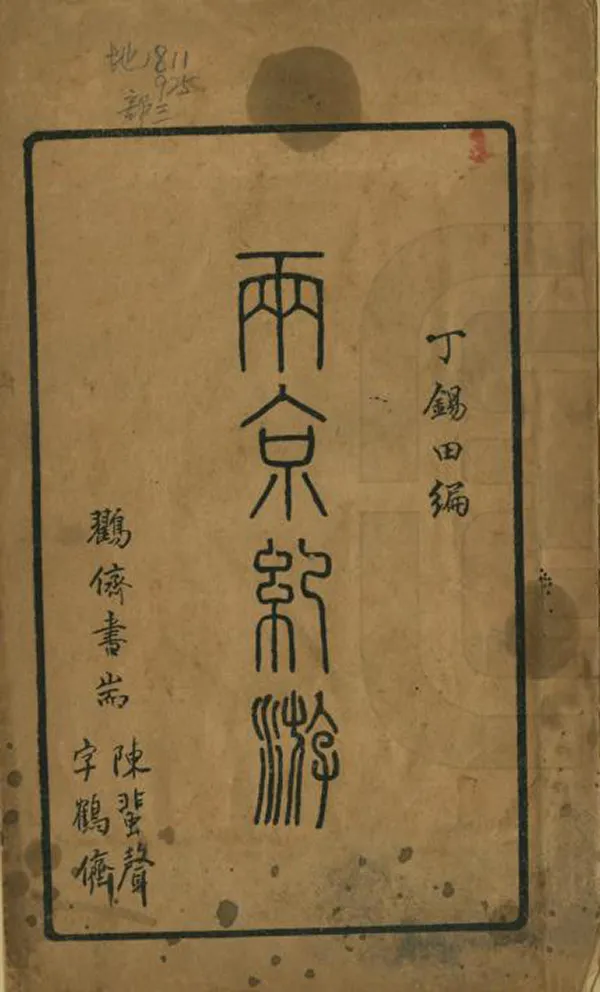 地1811
925
部二
丁錫田編
兩京紀游
鶴儕書耑
陳蜚聲
字鶴儕